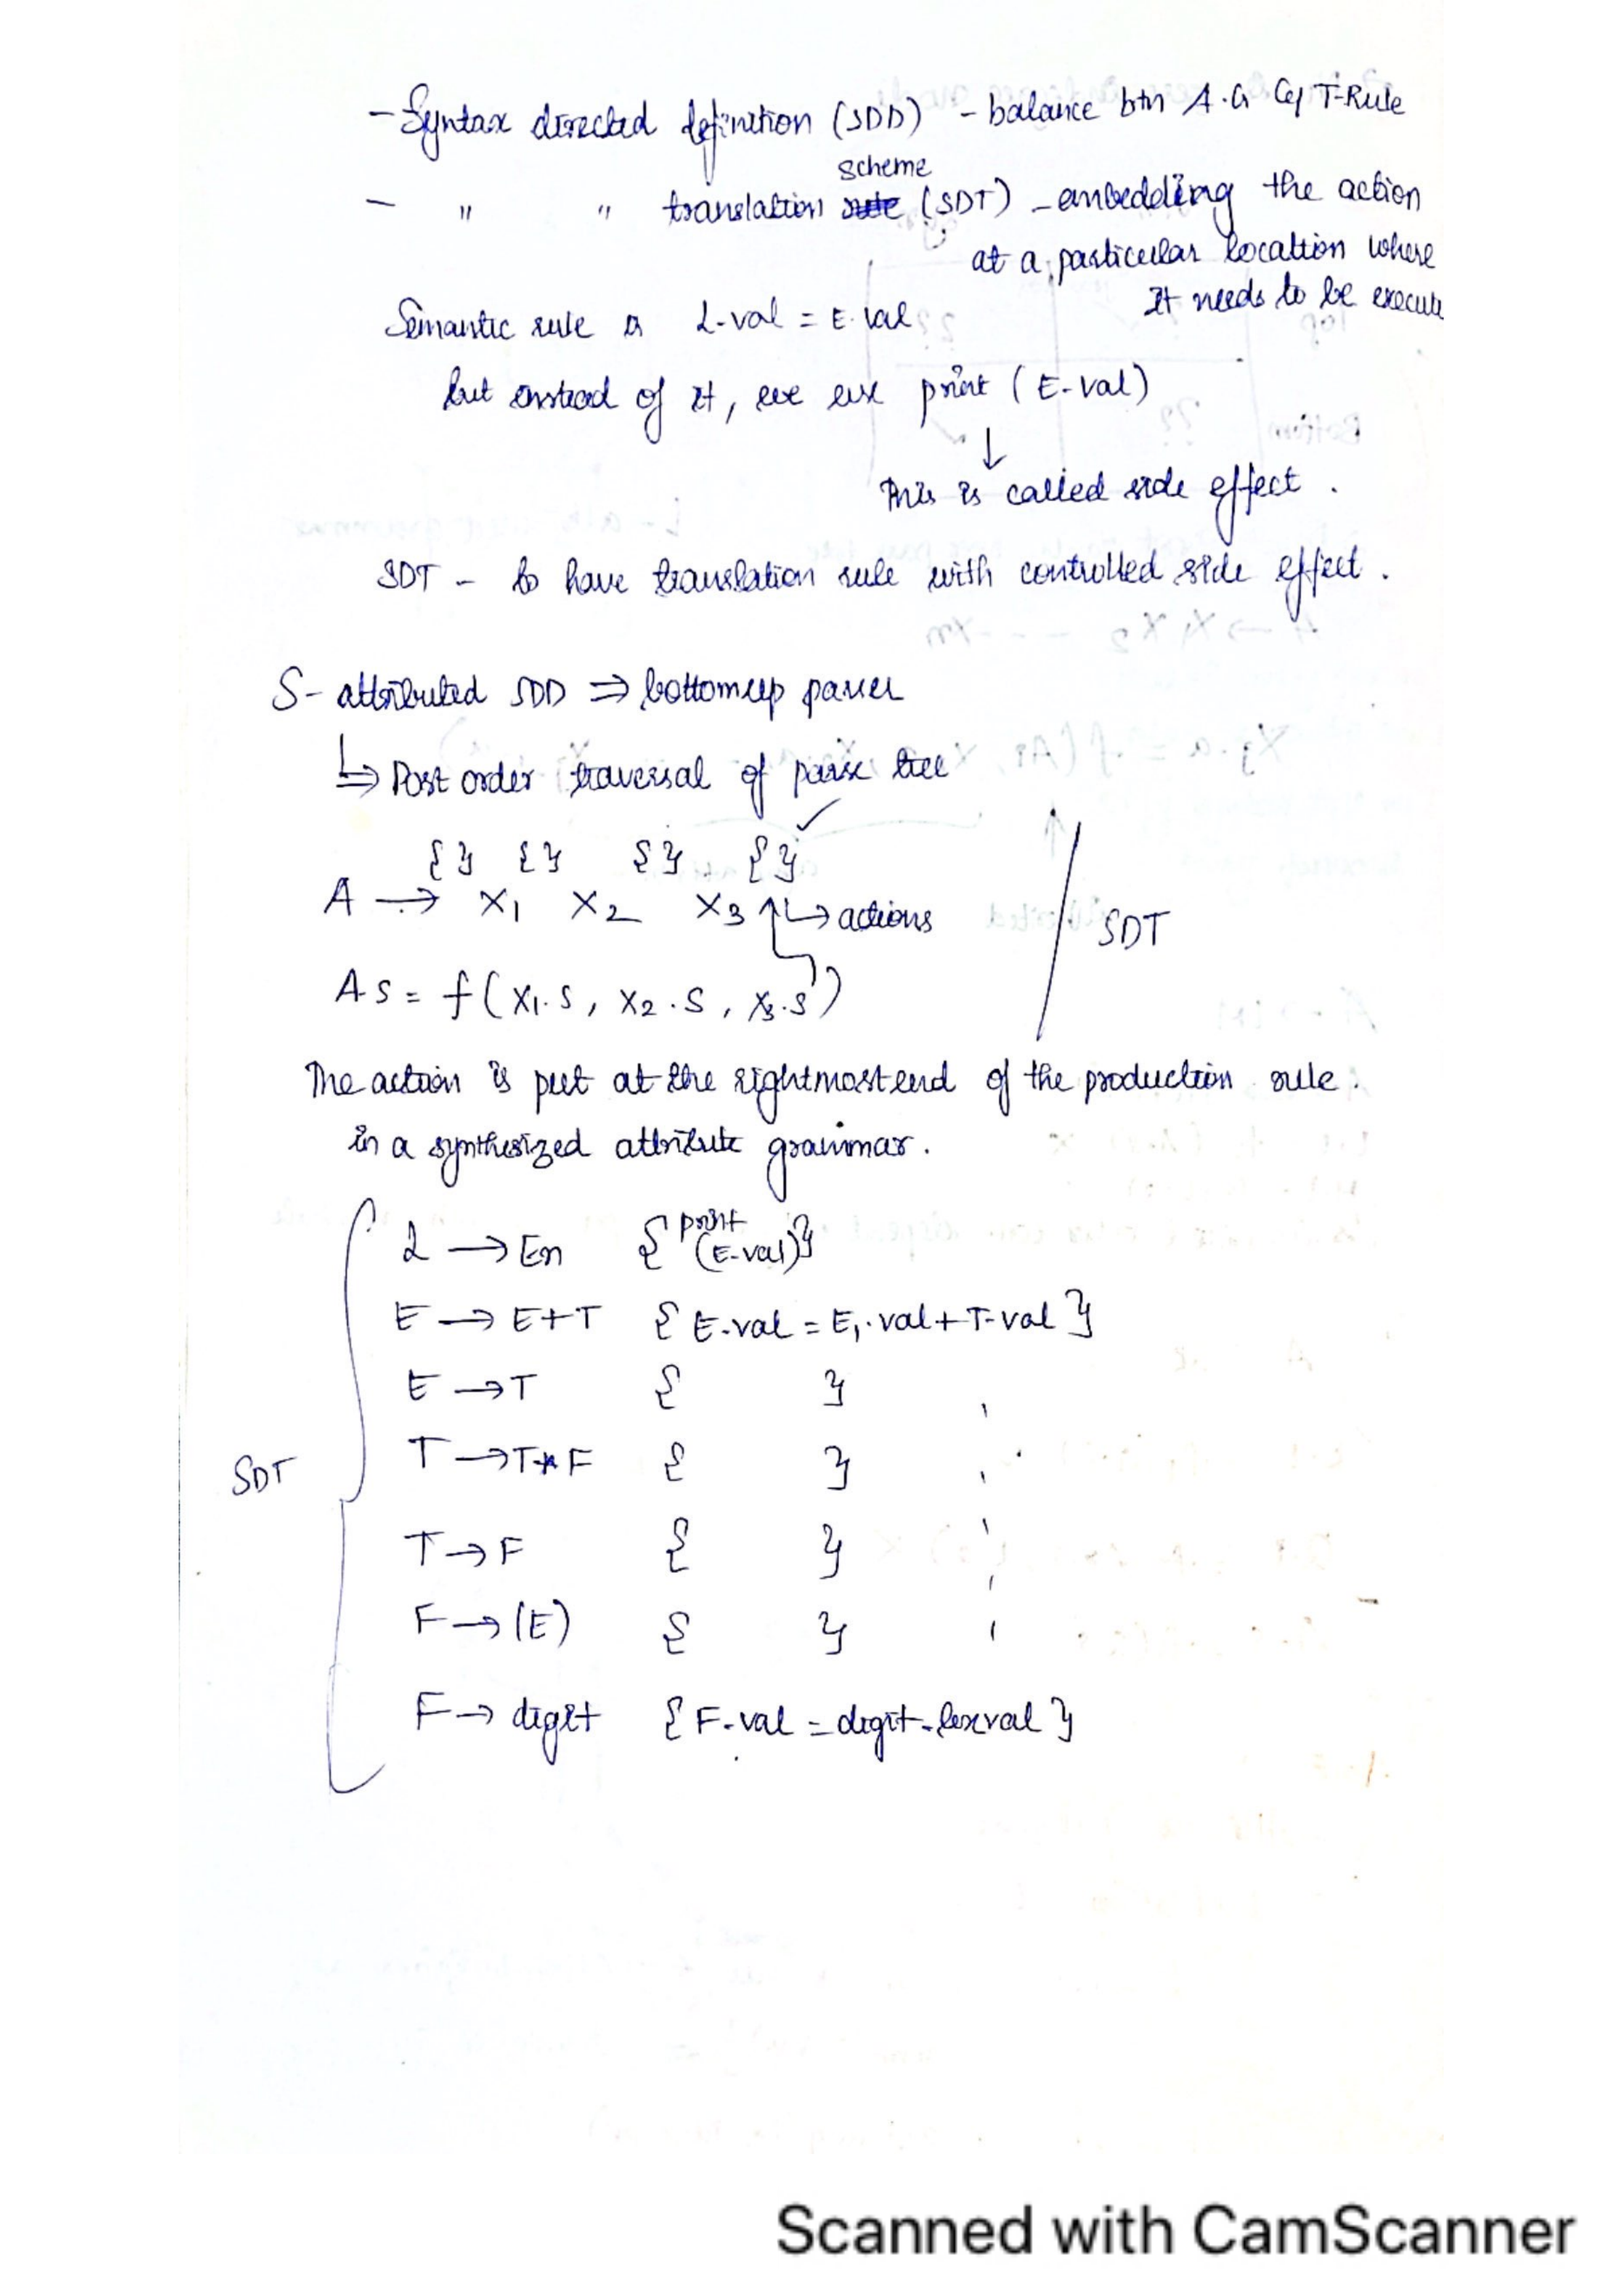 - Syntax directed definition (SDD) - balance btn A.G & T-Rule
scheme
- " " translation rule (SDT) - embedding the action
at a particular location where
It needs to be execute
Semantic rule is L.val = E.val
but instead of it, we use print (E.val)
↓
This is called side effect.
SDT - to have translation rule with controlled side effect.
S-attributed SDD ⇒ bottomup parser
↳ Post order traversal of parse tree
{ } { } { } { } ✓
A → X1 X2 X3 ↳ actions
SDT
A.s = f(X1.s, X2.s, X3.s)
The action is put at the rightmost end of the production rule.
in a synthesized attribute grammar.
L → En { print (E.val) }
E → E+T { E.val = E1.val + T.val }
E → T { }
T → T*F { }
SDT
T → F { }
F → (E) { }
F → digit { F.val = digit.lexval }
Scanned with CamScanner